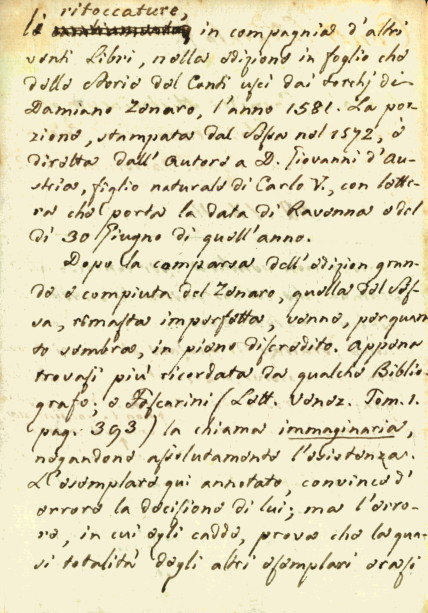 ritoccature,
li in compagnia d'altri
venti Libri, nella edizione in foglio che
delle Storie del Conti uscì dai torchj di
Damiano Zenaro, l'anno 1581. La por-
zione, stampata dal Sessa nel 1572, è
diretta dall'Autore a D. Giovanni d'Au-
stria, figlio naturale di Carlo V., con lette-
ra che porta la data di Ravenna e del
dì 30 Giugno di quell'anno.
Dopo la comparsa dell'edizion gran-
de e compiuta del Zenaro, quella del Ses-
sa, rimasta imperfetta, venne, per quan-
to sembra, in pieno discredito. Appena
trovasi più ricordata da qualche Biblio-
grafo; e Foscarini (Lett. venez. Tom. 1.
pag. 393) la chiama immaginaria,
negandone assolutamente l'esistenza.
L'esemplare qui annotato, convince d'
errore la decisione di lui; ma l'erro-
re, in cui egli cadde, prova che la qua-
si totalità degli altri esemplari erasi